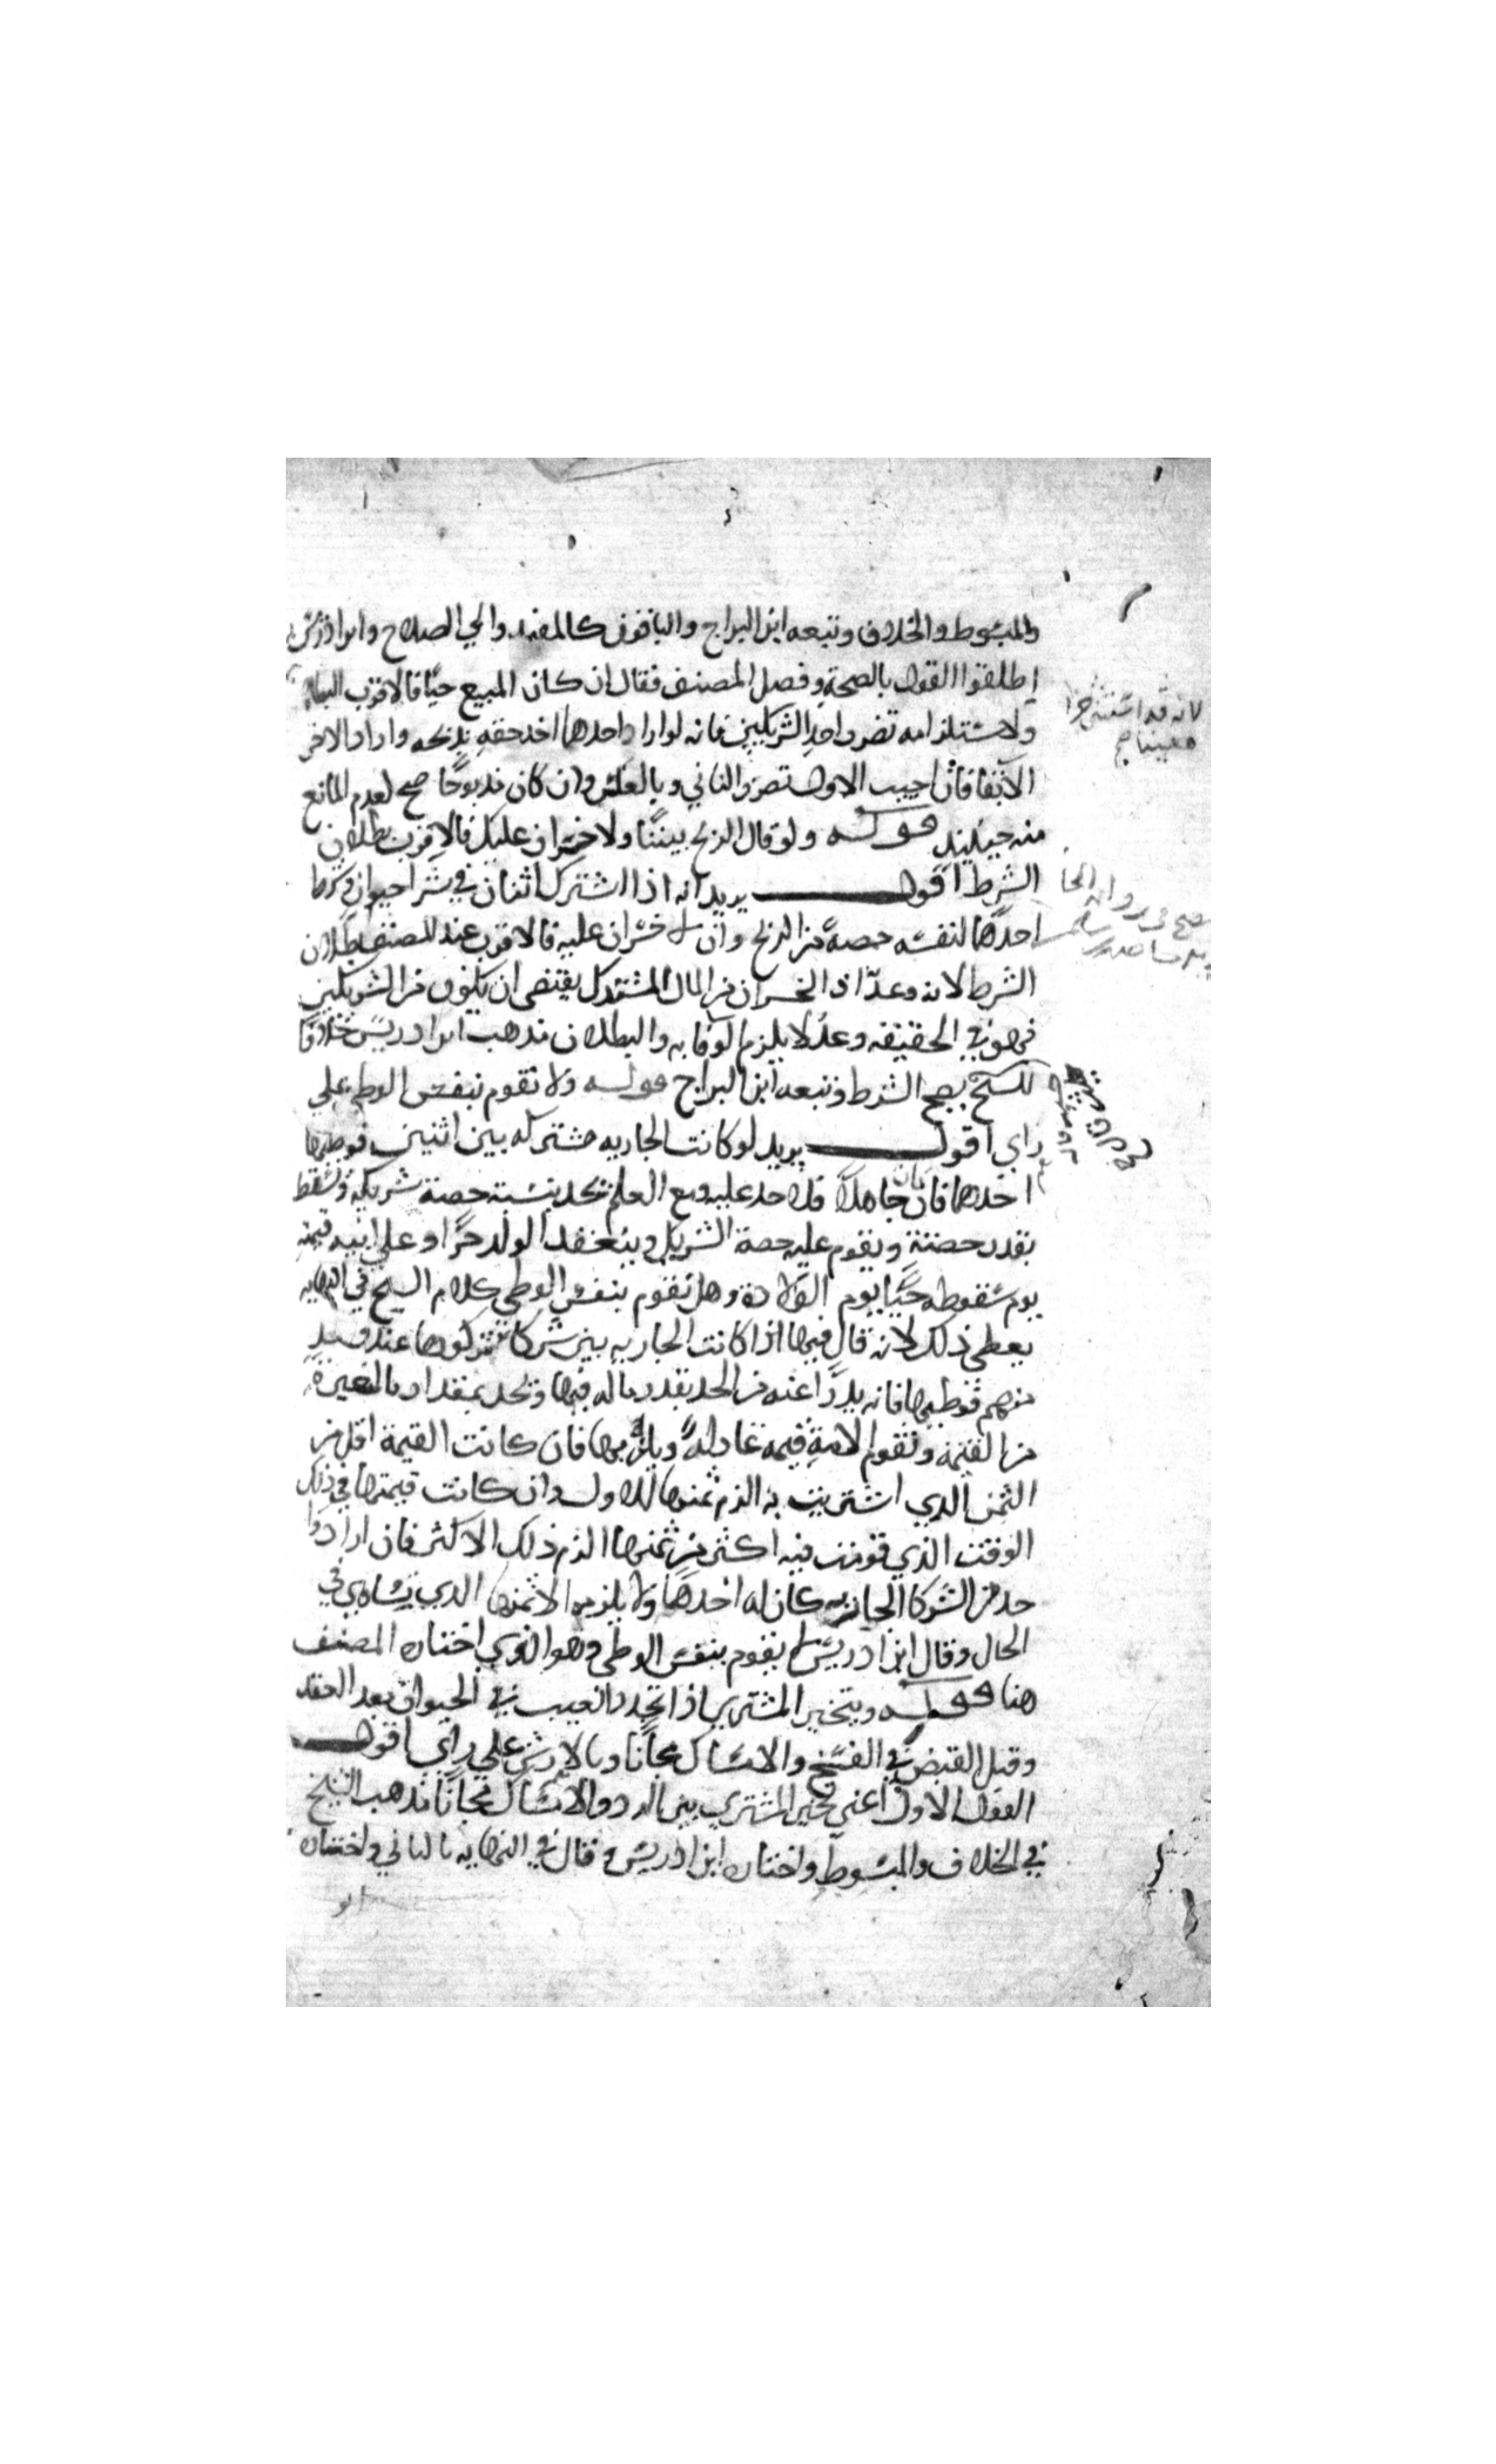 والمبسوط والخلاف وتبعه ابن البراج والباقون كالمفيد وابي الصلاح وابن ادريس
اطلقوا القول بالصحة وفصل المصنف فقال ان كان المبيع حيا فالاقرب البطلان
لانه قد استثنى جزا
معينا صح
ولاستلزامه تضرر احد الشريكين فانه لو اراد احدهما اخذ حقه بذبحه واراد الاخر
الابقا فان اجيب الاول تضرر الثاني وبالعكس وان كان مذبوحا صح لعدم المانع
منه حينئذ قوله ولو قال الربح بيننا ولا خسران عليك فالاقرب بطلان
الشرط اقول يريد انه اذا اشترك اثنان في شرا حيوان وشرط
احدهما لنفسه حصة من الربح وان لا خسران عليه فالاقرب عند المصنف بطلان
الشرط لانه وعد اذ الخسران من المال المشترك يقتضي ان يكون من الشريكين
فهو في الحقيقه وعد لا يلزم الوفا به والبطلان مذهب ابن ادريس خلافا
للشيخ يصح الشرط وتبعه ابن البراج قوله ولا تقوم بنفس الوطي على
راي اقول يريد لو كانت الجاريه مشتركه بين اثنين فوطيها
احدهما فان كان جاهلا فلا حد عليه ومع العلم يحد بنسبة حصة شريكه ويسقط
بقدر حصته ويقوم عليه حصة الشريك وينعقد الولد حرا وعلى ابيه قيمته
يوم سقوطه حيا يوم الولادة وهل تقوم بنفس الوطي كلام الشيخ في النهايه
يعطي ذلك لانه قال فيها اذا كانت الجاريه بين شركا تتركوها عند واحد
منهم فوطيها فانه يدرا عنه من الحد بقدر ماله فيها ويحد بمقدار ما لغيره
من القيمة وتقوم الامة قيمه عادلة ويلزمها فان كانت القيمة اقل من
الثمن الذي اشتريت به الزم ثمنها الاول وان كانت قيمتها في ذلك
الوقت الذي قومت فيه اكثر من ثمنها الزم ذلك الاكثر فان اراد وا
حد من الشركا الجاريه كان له اخذها ولا يلزمه الا ثمنها الذي يساوي في
الحال وقال ابن ادريس لا يقوم بنفس الوطي وهو الذي اختاره المصنف
هنا قوله ويتخير المشتري اذا تجدد العيب في الحيوان بعد العقد
وقبل القبض في الفسخ والامساك مجانا وبالارش على راي اقول
القول الاول اعني تخير المشتري بين الرد والامساك مجانا مذهب الشيخ
في الخلاف والمبسوط واختاره ابن ادريس وقال في النهايه بالثاني واختاره
ابو